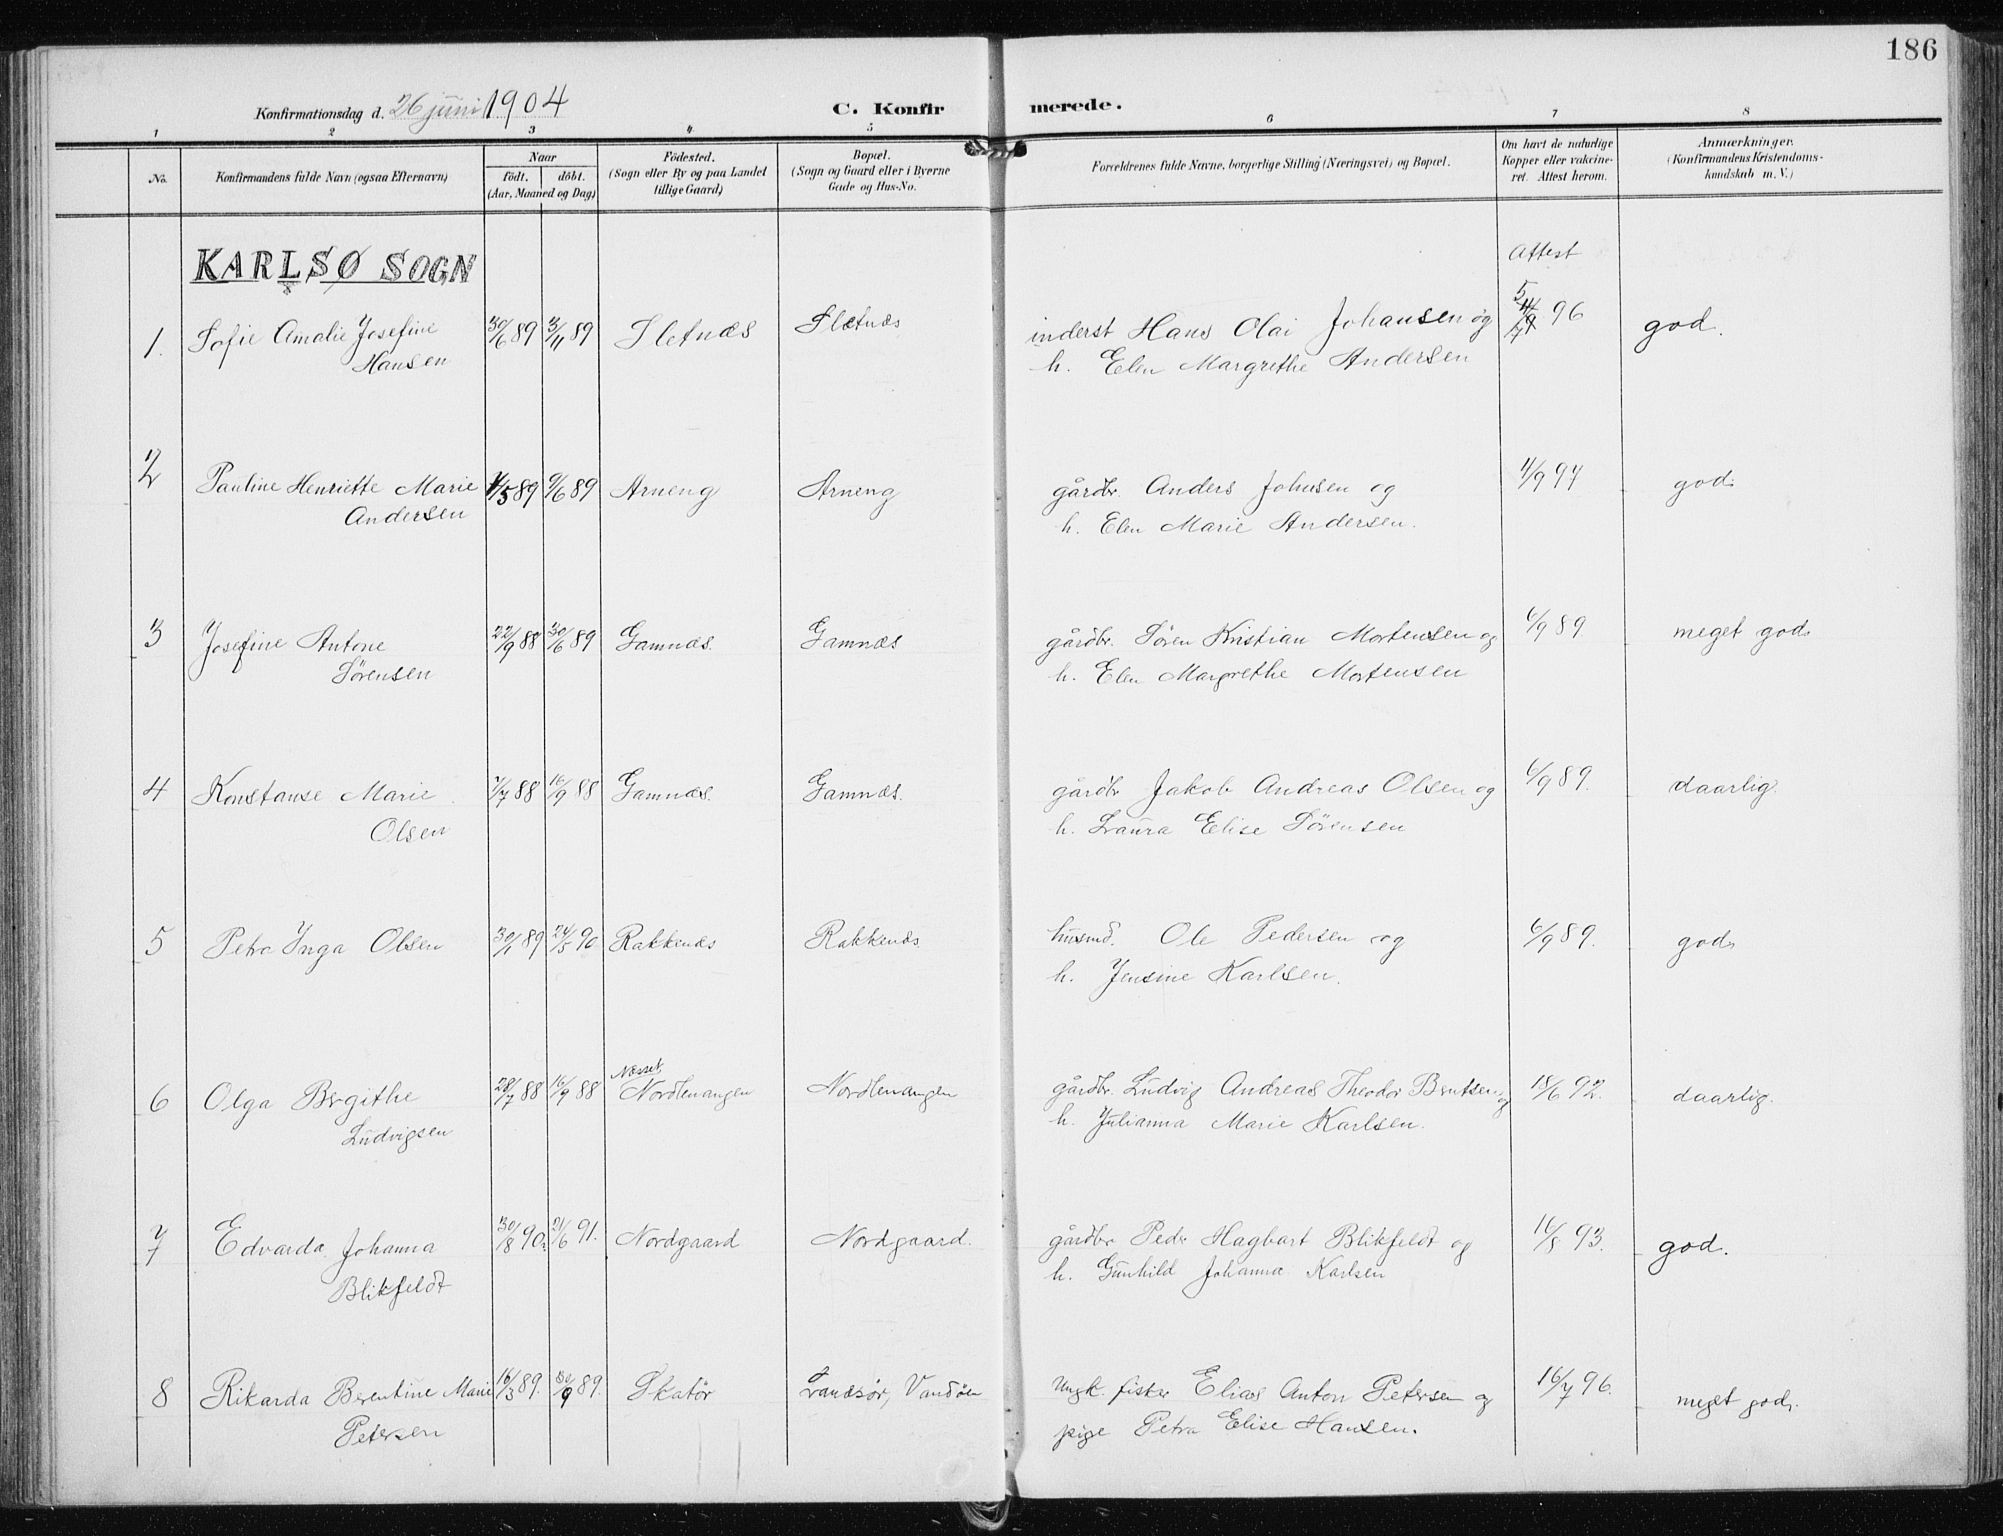 186
Konfirmationsdag d. 26 juni 1904
C. Konfirmerede.
1 2 3 4 5 6 7 8
No.
Konfirmandens fulde Navn (ogsaa Efternavn)
Naar
födt. döbt.
(Aar, Maaned og Dag)
Födested.
(Sogn eller By og paa Landet
tillige Gaard)
Bopæl.
(Sogn og Gaard eller i Byerne
Gade og Hus-No.
Forældrenes fulde Navne, borgerlige Stilling (Næringsvei) og Bopæl.
Om havt de naturlige
Kopper eller vakcine-
ret. Attest herom.
Anmærkninger.
(Konfirmandens Kristendoms-
kundskab m. V.)
KARLSØ SOGN
Attest
1. Sofie Amalie Josefine 30/6 89 3/11 89 Sletnæs Slætnæs inderst Hans Olai Johansen og 96 god.
Hansen h. Elen Margrethe Andersen
2 Pauline Henriette Marie /5 89 9/6 89 Arneng Arneng gårdbr. Anders Johnsen og 4/9 97 god
Andersen h. Elen Marie Andersen.
3 Josefine Antone 22/9 88 30/6 89 Gamnæs. Gamnæs gårdbr. Sören Kristian Mortensen og 6/9 89 meget god.
Sörensen h. Elen Margrethe Mortensen
4 Konstanse Marie 7/7 88 16/9 88 Gamnæs. Gamnæs. gårdbr Jakob Andreas Olsen og 6/9 89. daarlig.
Olsen h. Laura Elise Sörensen
5 Petra Inga Olsen 89 24/5 90 Rakkenæs Rakkenæs husmd. Ole Pedersen og 6/9 89. god.
h. Jensine Karlsen.
Næsset
6 Olga Bergithe 28/7 88 16/9 88 Nordlenangen Nordlenangen gårdbr. Ludvig Andreas Theodor Bentsen og 18/6 92. daarlig.
Ludvigsen h. Julianna Marie Karlsen.
7 Edvarda Johanna 30/8 90. 21/6 91. Nordgaard Nordgaard. gårdbr Peder Hagbart Blikfeldt og 93. god.
Blikfeldt h. Gunhild Johanna Karlsen
8 Rikarda Berentine Marie 16/3 89. 30/9 89. Skatör Vandöen Ungk. fisker Elias Anton Petersen og 16/7 96. meget god.
Petersen pige Petra Elise Hansen.